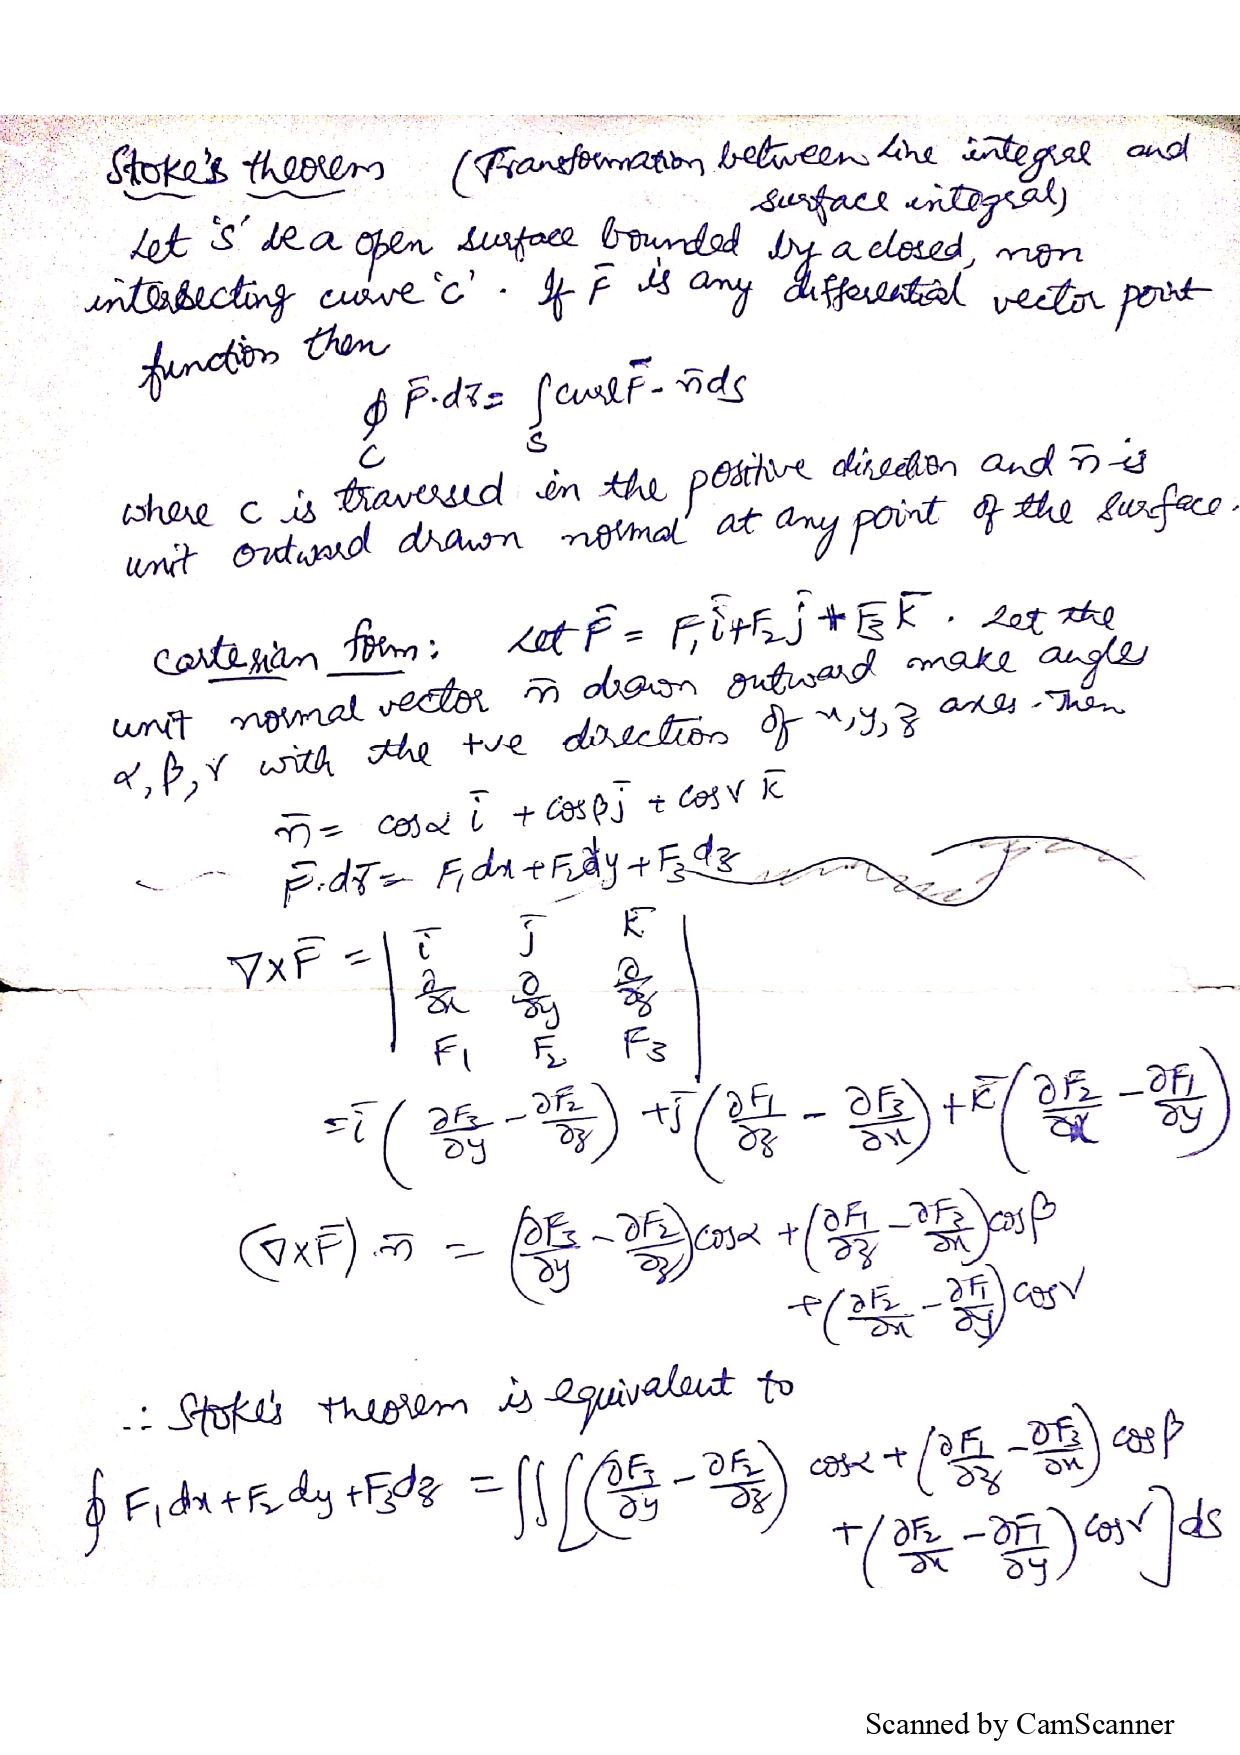 Stoke's theorem (Transformation between line integral and
surface integral)
Let 's' be a open surface bounded by a closed, non
intersecting curve 'c'. If F̄ is any differential vector point
function then
∮_C F̄.dr̄ = ∫_S curl F̄ - n̄ ds
where c is traversed in the positive direction and n̄ is
unit outward drawn normal at any point of the surface.
Cartesian form: Let F̄ = F₁ī+F₂j̄+F₃k̄. Let the
unit normal vector n̄ drawn outward make angles
α, β, γ with the +ve direction of x, y, z axes. Then
n̄ = cosα ī + cosβ j̄ + cosγ k̄
F̄.dr̄ = F₁dx+F₂dy+F₃dz
∇×F̄ = | ī j̄ k̄
∂/∂x ∂/∂y ∂/∂z
F₁ F₂ F₃ |
= ī(∂F₃/∂y - ∂F₂/∂z) + j̄(∂F₁/∂z - ∂F₃/∂x) + k̄(∂F₂/∂x - ∂F₁/∂y)
(∇×F̄).n̄ = (∂F₃/∂y - ∂F₂/∂z)cosα + (∂F₁/∂z - ∂F₃/∂x)cosβ
+ (∂F₂/∂x - ∂F₁/∂y)cosγ
∴ Stoke's theorem is equivalent to
∮ F₁dx+F₂dy+F₃dz = ∫∫[(∂F₃/∂y - ∂F₂/∂z) cosα + (∂F₁/∂z - ∂F₃/∂x) cosβ
+ (∂F₂/∂x - ∂F₁/∂y) cosγ]ds
Scanned by CamScanner